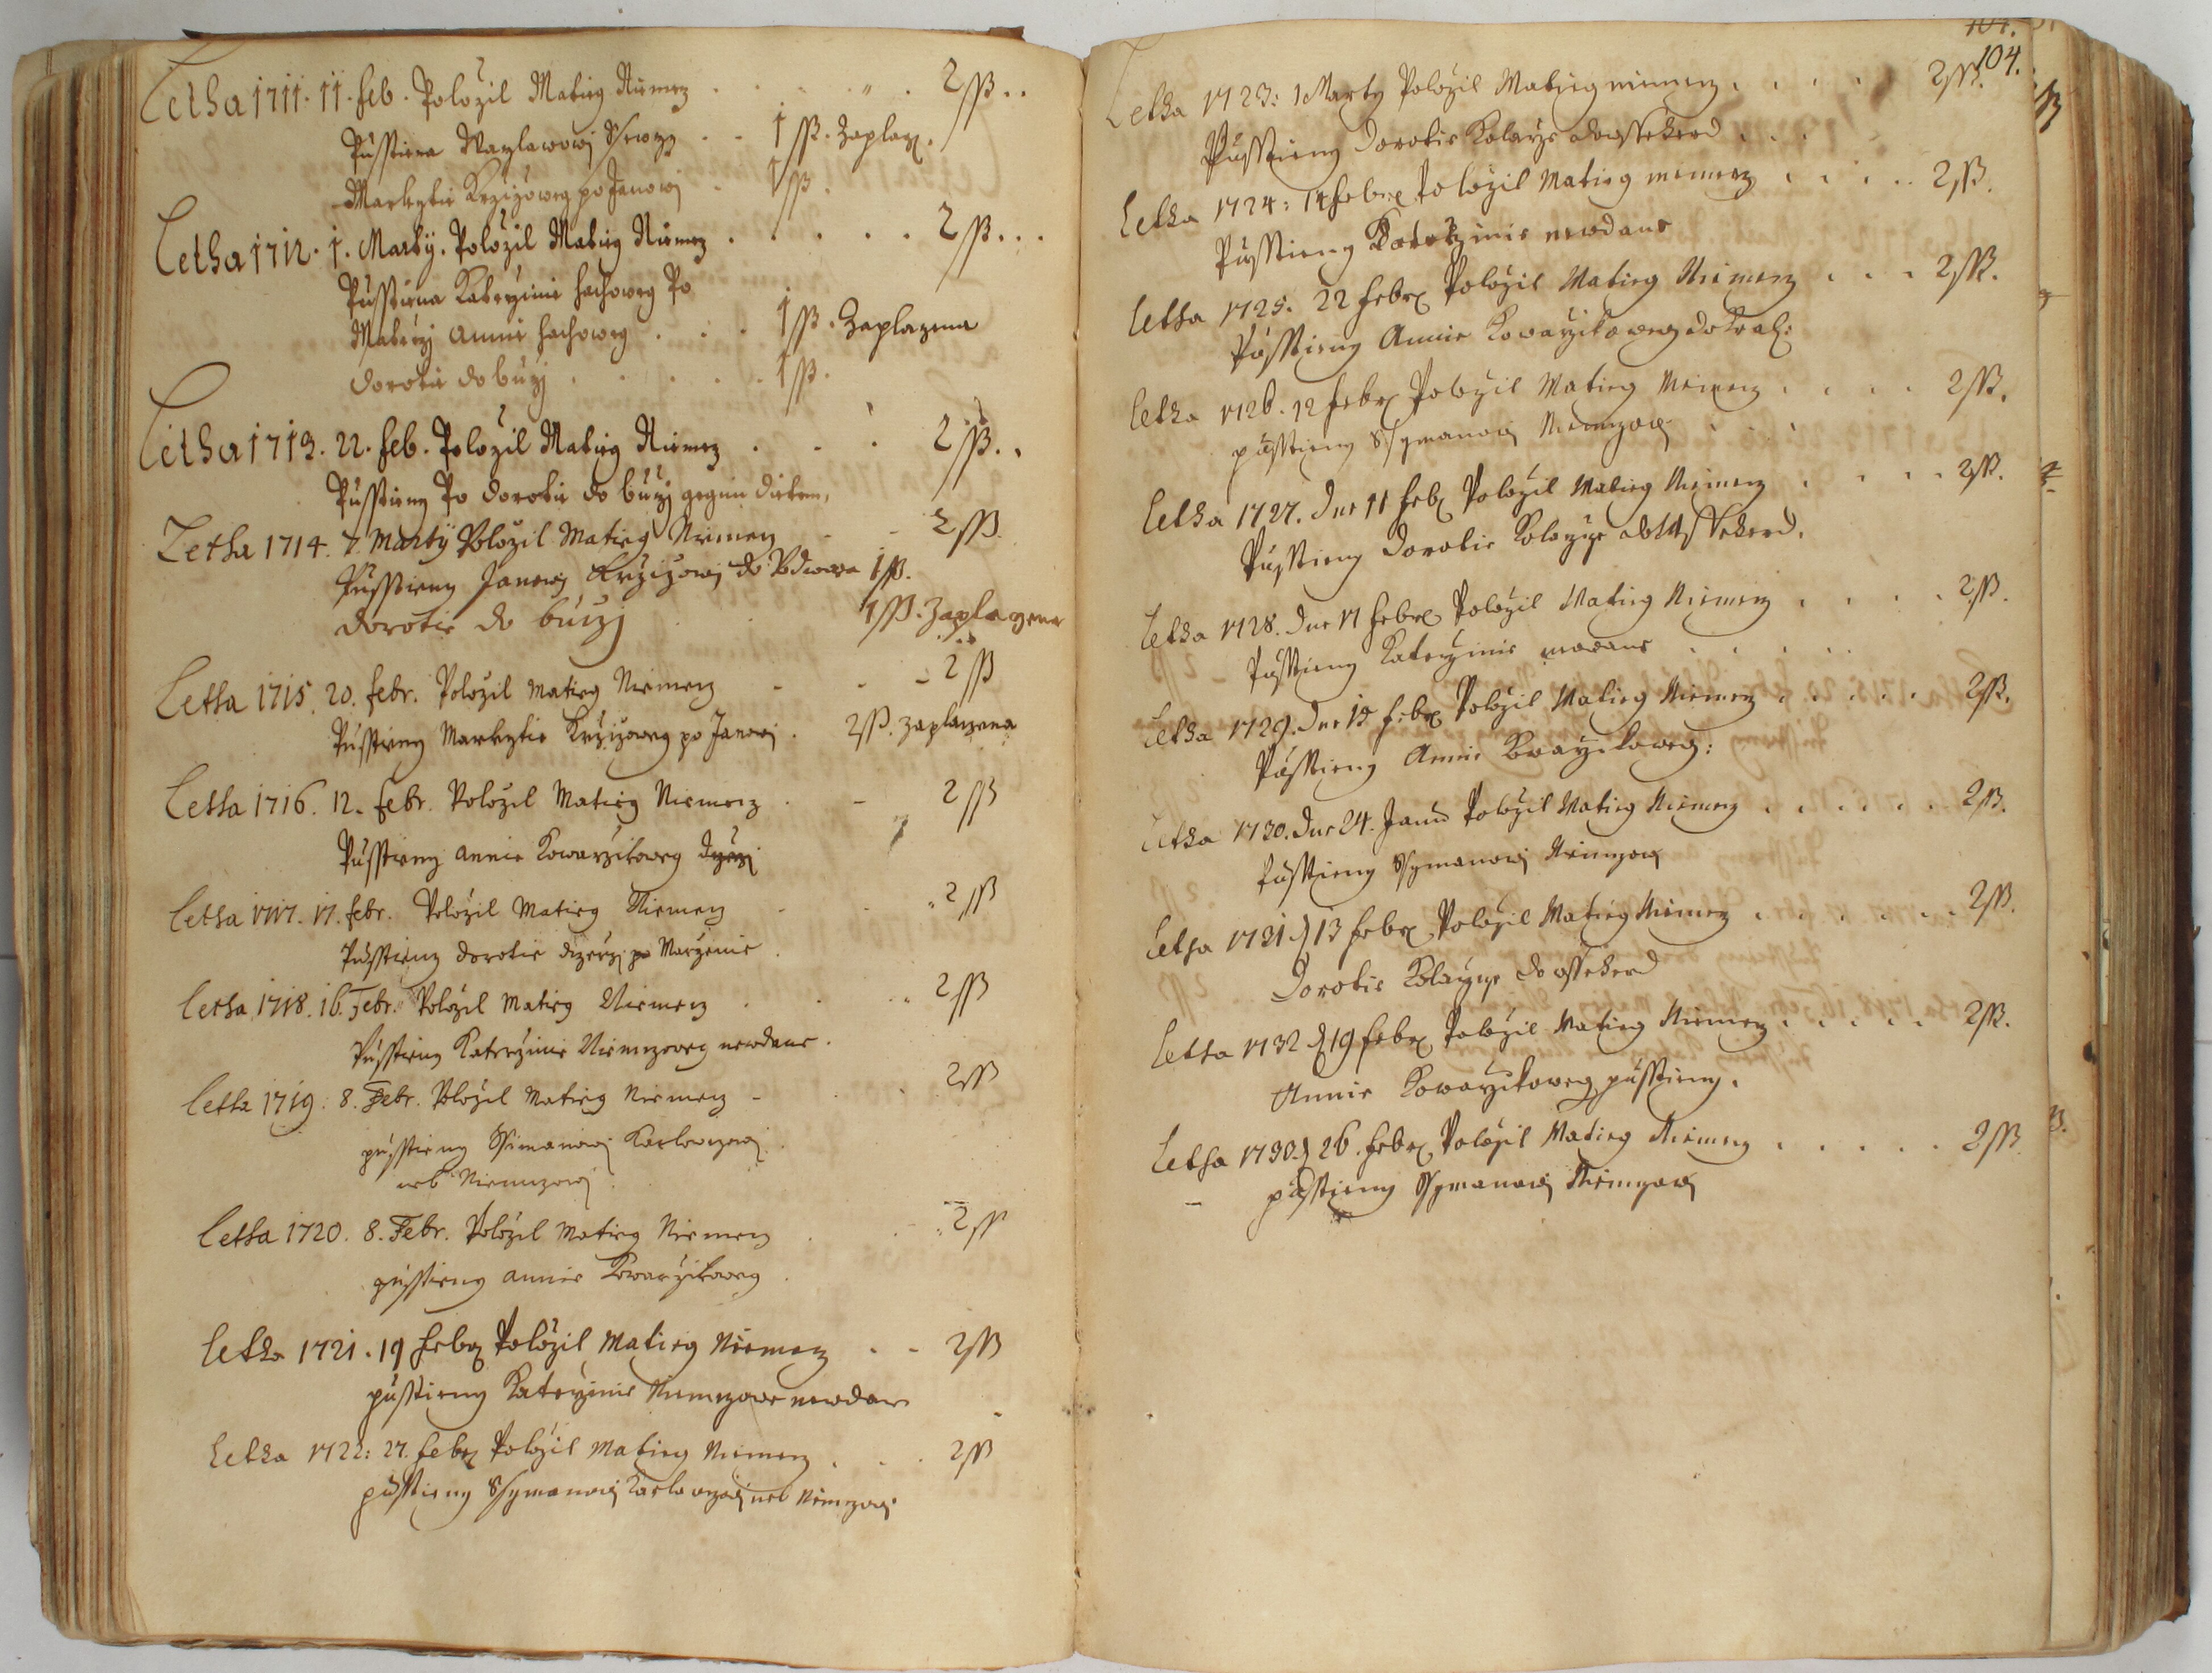 Letha 1711. 11. feb. Položil Matieg Niemez . . . . . 2 ſß. .
Pusstiena Waczlawowj Ssewczy . . 1 ſß. Zaplacz.
Markytie Kržyžoweg po Janowj . 1 ſß.
Letha 1712. 1. Marty. Položil Matieg Niemez . . . . . 2 ſß. . .
Pusstiena Kateržinie hachoweg Po
Materžj Annie hachoweg . . . 1 ſß. Zaplazena
Dorotie do buczj . . . . . 1 ſß.
Letha 1713. 22. feb. Položil Matieg Niemez . . . 2 ſß. .
Pusstieny Po Dorotie do buczj gegim dietem,
Letha 1714. 7. Marty Položil Matieg Niemecz - - 2 ſß.
Pusstieny Janowj Kržižowj do 1 ſß.
Dorotie do buczj 1 ſß. Zaplazena
Letha 1715. 20. febr. Položil Matieg Niemecz - - - 2 ſß
Pusstieny Markytie Kržižoweg po Janowj . 2 ſß. zaplaczena
Letha 1716. 12. febr. Položil Matieg Niemecz . - 2 ſß
Pusstieny Annie Kowaržikoweg
Letha 1717. 17. febr. Položil Matieg Niemecz - . . 2 ſß
Pusstieny Dorotie dczeržj po Marženie .
Letha 1718. 16. Febr. Položil Matieg Niemecz . . . 2 ſß
Pusstieny Kateržinie Niemczoweg newdane .
Letha 1719: 8. Febr. Položil Matieg Niemecz - . . 2 ſß
pusstieny Ssimanowj Karlowczowj .
neb Niemczowj .
Letha 1720. 8. Febr. Položil Matieg Niemecz . . . 2 ſß
pusstieny Annie Kowaržikoweg .
Letha 1721. 19 febr Položil Matieg Niemecz . - 2 ſß
pusstieny Kateržinie Niemczowe newdane
Letha 1722: 27. febr Položil Matieg Niemecz . . . 2 ſß
pusstieny Ssymanowj Karlowczowj neb Niemczowj
104.
Letha 1723: 1 Marty Položil Matieg niemecz . . . . . 2 ſß.
Pusstieny Dorotie Kolaržce . . .
Letha 1724: 14 febr Položil Matieg niemecz . . . . 2 ſß.
Pusstieny Kateržinie newdane
Letha 1725. 22 febr Položil Matieg Niemecz . . . 2 ſß.
Pusstieny Annie Kowaržikoweg
Letha 1726. 12 febr Položil Matieg Niemecz . . . . 2 ſß.
pusstieny Ssymanowj Niemczowj . . .
Letha 1727. Dne 11 feb Položil Matieg Niemecz . . . . 2 ſß.
Pusstieny Dorotie Kolaržce
Letha 1728. Dne 17 febr Položil Matieg Niemecz . . . . 2 ſß.
Pusstieny Kateržinie newdane . . . . .
Letha 1729. Dne 15 febr Položil Matieg Niemecz . . . . . 2 ſß.
Pusstieny Annie Kowaržikoweg:
Letha 1730. Dne 24. Janu Položil Matieg Niemecz . . . . . . 2 ſß.
Pusstieny Ssymanowj Niemczowj
Letha 1731 d 13 febr Položil Matieg Niemecz . . . . . . 2 ſß.
Dorotie Kolaržce
Letha 1732 d 19 febr Položil Matieg Niemecz . . . . . 2 ſß.
Annie Kowaržikoweg pusstieny.
Letha 1733 d 26. febr Položil Matieg Niemecz . . . . . 2 ſß
pusstieny Ssymanowj Niemczowj